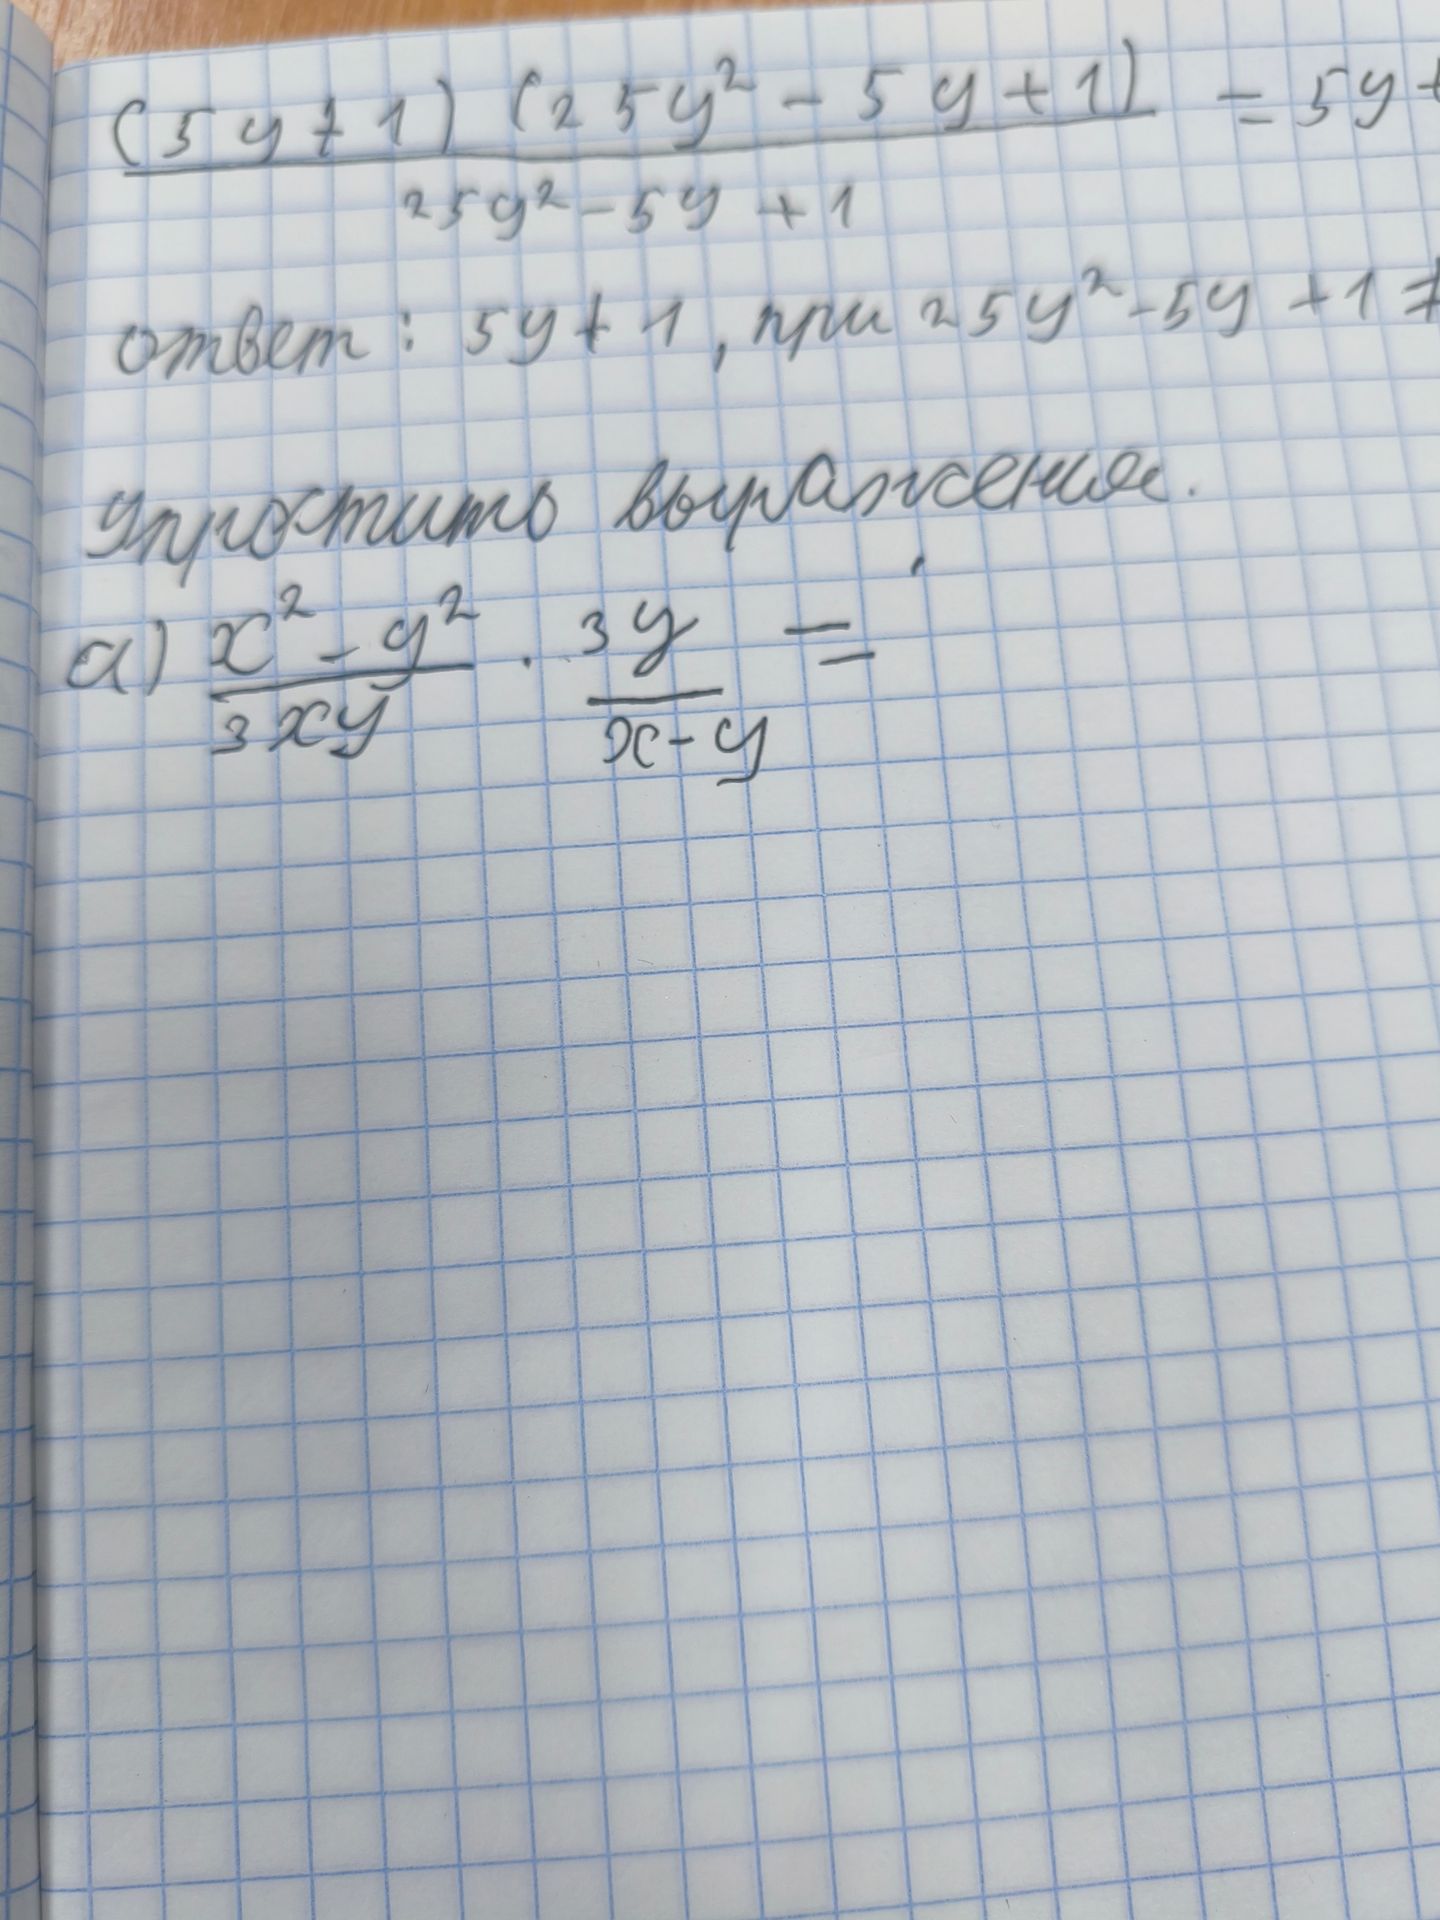 (5y+1)(25y²-5y+1) = 5y+
25y²-5y+1
ответ: 5y+1, при 25y²-5y+1≠
Упростить выражения.
а) x²-y² · 3y =
3xy x-y